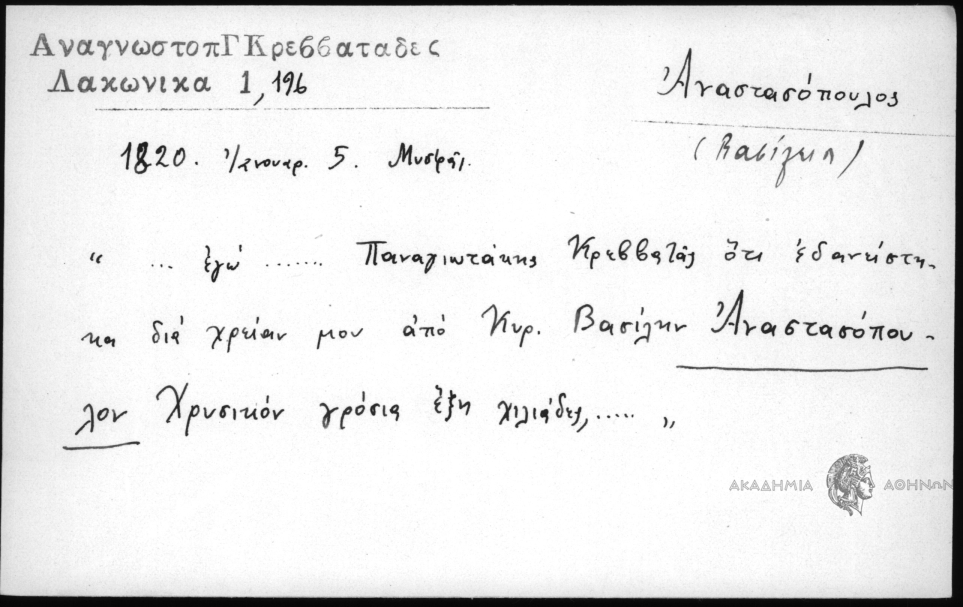 ΑναγνωστοπΓΚρεββαταδες
Λακωνικα 1,196
Ἀναστασόπουλος
(Βασίλειη)
1820. Ἰανουαρ. 5. Μυστρᾶς.
“ ... ἐγώ ....... Παναγιωτάκης Κρεββατᾶς ὅτι ἐδανείστη-
κα διά χρείαν μου ἀπό Κυρ. Βασίλην Ἀναστασόπου-
λον Χρυσικόν γρόσια ἕξη χιλιάδες, ..... „
ΑΚΑΔΗΜΙΑ ΑΘΗΝΩΝ